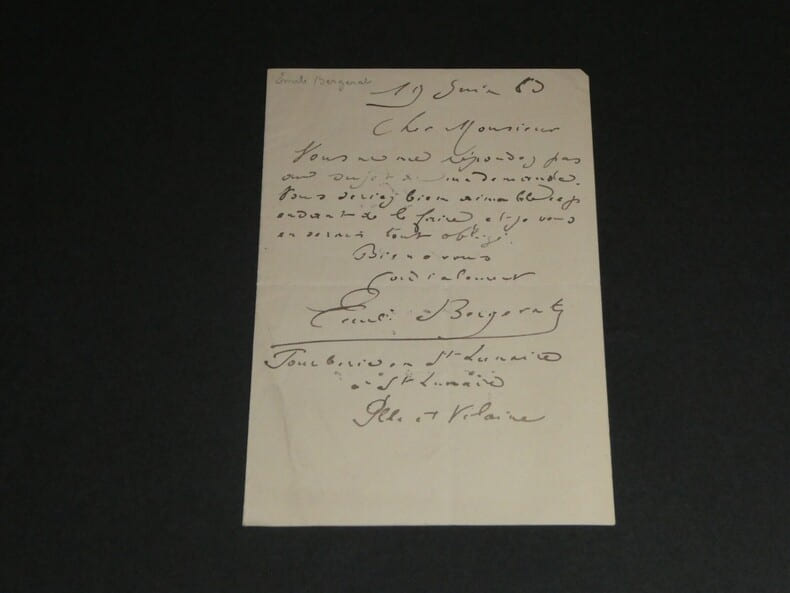 Émile Bergerat
19 Juin 83
Cher Monsieur
Vous ne me répondez pas
au sujet de ma demande.
Vous seriez bien aimable cep
endant de le faire, et je vous
en serais tout obligé.
Bien a vous
Cordialement
Emile Bergerat
en St Lunaire
St Lunaire
Ille et Vilaine